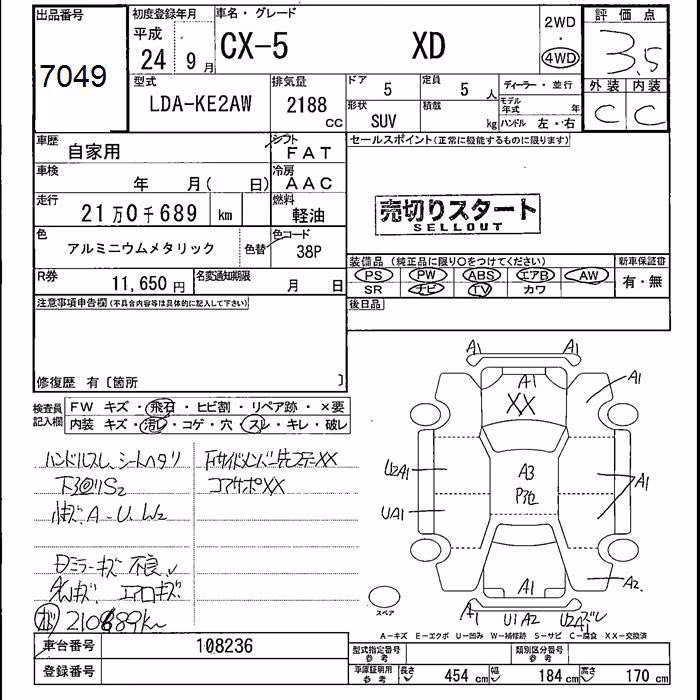 出品番号
7049
初度登録年月
平成
24年 9月
車名・グレード
CX-5 XD
2WD
4WD
評価点
3.5
外装 内装
C C
型式
LDA-KE2AW
排気量
2188 CC
ドア 5
定員 5人
形状 SUV
積載 kg
ディーラー・並行
モデル年式 年
ハンドル 左・右
車歴 自家用
シフト FAT
車検 年 月( 日)
冷房 AAC
走行 21万0千689 km
燃料 軽油
色 アルミニウムメタリック
色替
色コード 38P
R券 11,650円
名変通知期限 月 日
セールスポイント(正常に機能するものに限ります)
売切りスタート
SELLOUT
装備品(純正品に限り○をつけてください)
新車保証書
PS PW ABS エアB AW
有・無
SR ナビ TV カワ
後日品
注意事項申告欄(不具合内容等は具体的に記入して下さい)
修復歴 有〔箇所 〕
検査員記入欄
FW キズ・飛石・ヒビ割・リペア跡・×要
内装 キズ・汚れ・コゲ・穴・スレ・キレ・破レ
ハンドルスレ、シートヘタリ
下回りS2
小キズ A-U、W2
ミラーキズ 不良
エアロキズ
210689km
コアサポXX
A1
A1
XX
A1
U2A1
A3
A1
UA1
A2
A1
A1
U1A2
U2A1ズレ
スペア
A-キズ E-エクボ U-凹み W-補修跡 S-サビ C-腐食 XX-交換済
車台番号 108236
登録番号
型式指定番号 参考
類別区分番号 参考
車庫証明用 参考
長さ 454cm
幅 184cm
高さ 170cm